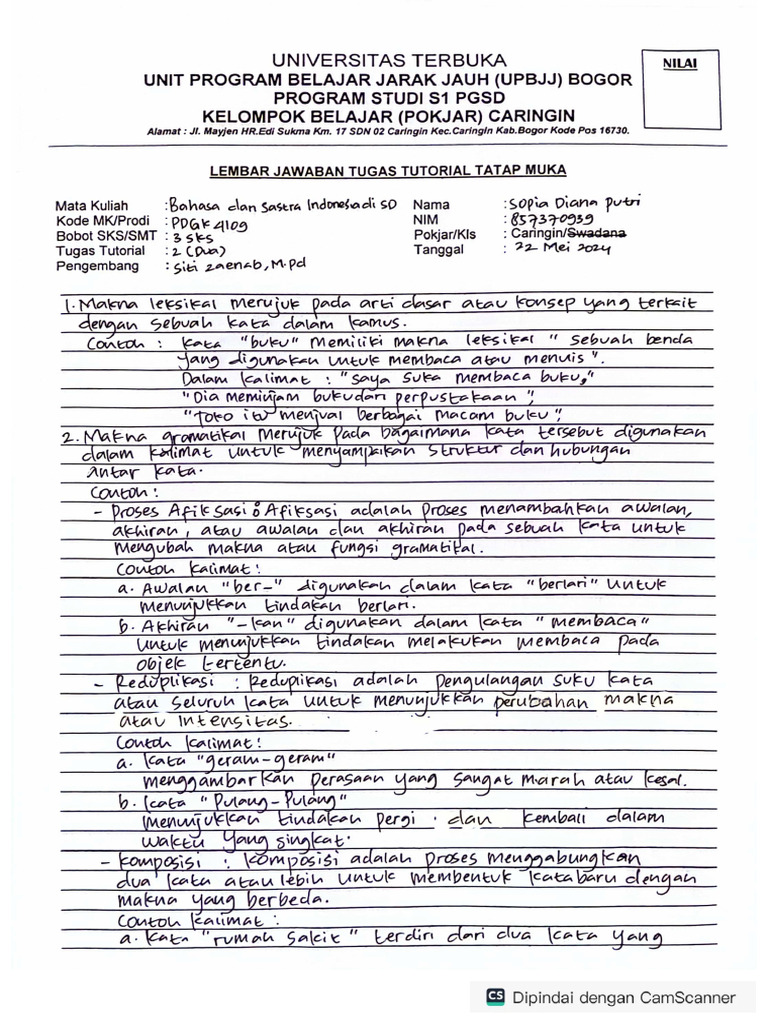 UNIVERSITAS TERBUKA
UNIT PROGRAM BELAJAR JARAK JAUH (UPBJJ) BOGOR
PROGRAM STUDI S1 PGSD
KELOMPOK BELAJAR (POKJAR) CARINGIN
Alamat : Jl. Mayjen HR.Edi Sukma Km. 17 SDN 02 Caringin Kec.Caringin Kab.Bogor Kode Pos 16730.
NILAI
LEMBAR JAWABAN TUGAS TUTORIAL TATAP MUKA
Mata Kuliah : Bahasa dan Sastra Indonesia di SD
Kode MK/Prodi : PDGK 4109
Bobot SKS/SMT : 3 SKS
Tugas Tutorial : 2 (Dua)
Pengembang : Siti Zaenab, M.Pd
Nama : Sopia Diana Putri
NIM : 857370939
Pokjar/Kls : Caringin/Swadana
Tanggal : 22 Mei 2024
1. Makna leksikal merujuk pada arti dasar atau konsep yang terkait
dengan sebuah kata dalam kamus.
Contoh : Kata "buku" memiliki makna leksikal " sebuah benda
yang digunakan untuk membaca atau menuis".
Dalam kalimat : "Saya suka membaca buku,"
"Dia meminjam buku dari perpustakaan",
"Toko itu menjual berbagai macam buku",
2. Makna gramatikal merujuk pada bagaimana kata tersebut digunakan
dalam kalimat untuk menyampaikan struktur dan hubungan
antar kata.
Contoh :
- Proses Afiksasi : Afiksasi adalah proses menambahkan awalan,
akhiran, atau awalan dan akhiran pada sebuah kata untuk
mengubah makna atau fungsi gramatikal.
Contoh kalimat :
a. Awalan "ber-" digunakan dalam kata "berlari" untuk
menunjukkan tindakan berlari.
b. Akhiran "-kan" digunakan dalam kata "membaca"
untuk menunjukkan tindakan melakukan membaca pada
objek tertentu.
- Reduplikasi : Reduplikasi adalah pengulangan suku kata
atau seluruh kata untuk menunjukkan perubahan makna
atau intensitas.
Contoh kalimat :
a. Kata "geram-geram"
menggambarkan perasaan yang sangat marah atau kesal.
b. Kata "Pulang-Pulang"
menunjukkan tindakan pergi dan kembali dalam
waktu yang singkat.
- Komposisi : Komposisi adalah proses menggabungkan
dua kata atau lebih untuk membentuk kata baru dengan
makna yang berbeda.
Contoh kalimat :
a. Kata "rumah sakit" terdiri dari dua kata yang
CS Dipindai dengan CamScanner